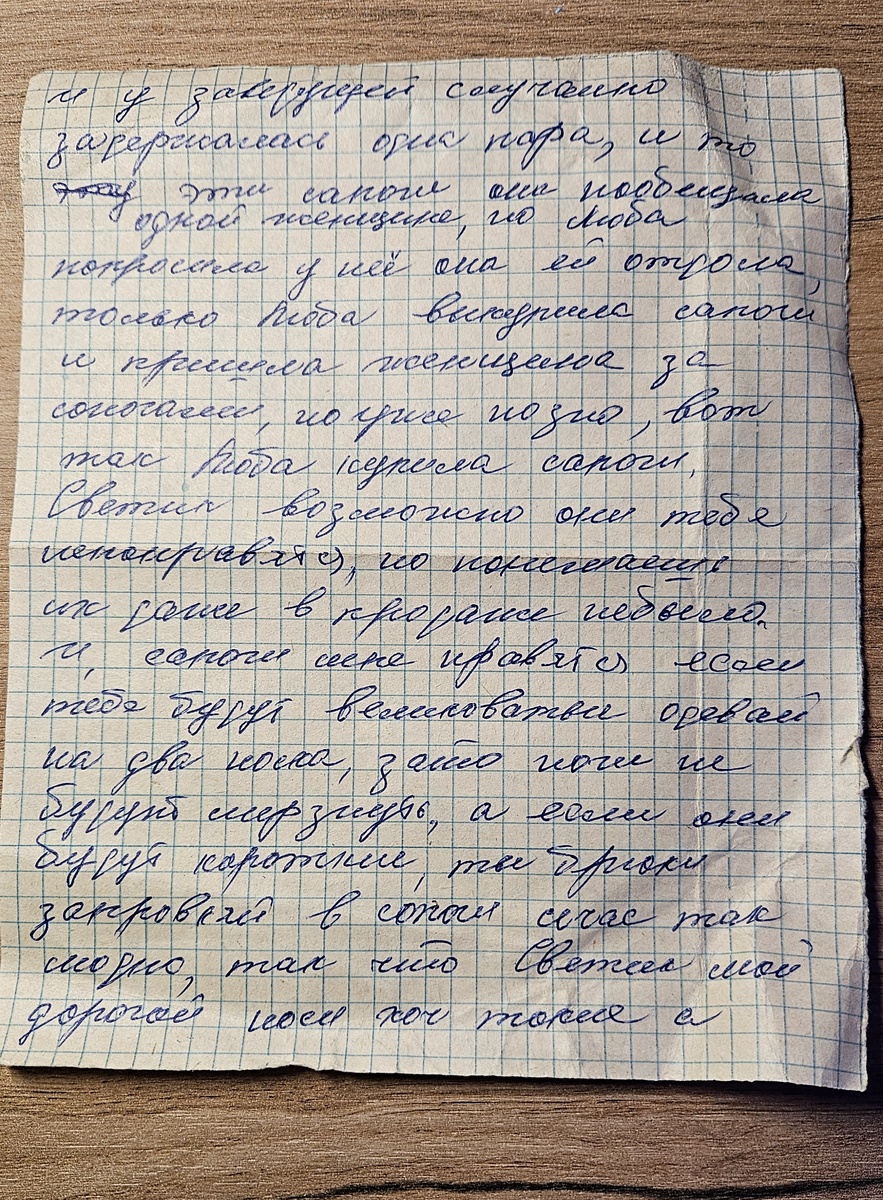 и у заведущей случайно
задержалась одна пара, и то
эти сапоги она пообещала
одной женщине, но Люба
попросила у неё она ей отдола,
только Люба выкупила сапоги
и пришла женщина за
сопогами, но уже позно, вот
так Люба купила сапоги.
Светик возможно они тебе
непонравятся, но понимаешь
их даже в продаже небыло.
И, сапоги мне нравятся если
тебе будут великоватые одевай
на два носка, зато ноги не
будут мерзнуть, а если они
будут короткие, ты брюки
заправляй в сопоги счас так
модно, так что Светик мой
дорогой носи хоч такие а